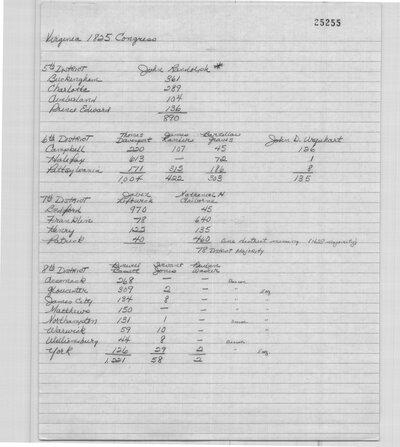 25255
Virginia 1825 Congress
5th District John Randolph *
Buckingham 361
Charlotte 289
Cumberland 104
Prince Edward 136
890
6th District Thomas Davenport James Bartillar Graves John D. Urquhart
Campbell 220 107 45 126
Halifax 613 — 72 1
Pittsylvania 171 315 186 8
1,004 422 303 135
7th District Jabez Leftwich Nathaniel H. Claiborne
Bedford 970 45
Franklin 78 640
Henry 122 135
Patrick 40 460
78 District Majority
8th District Burwell Bassett Servant Jones
Accomack 268 — —
Gloucester 309 2 — Esq.
James City 134 8 — " "
Matthews 150 — — " "
Northampton 131 1 — "
Warwick 59 10 — " "
Williamsburg 44 8 —
York 126 29 2 " Esq.
1,221 58 2